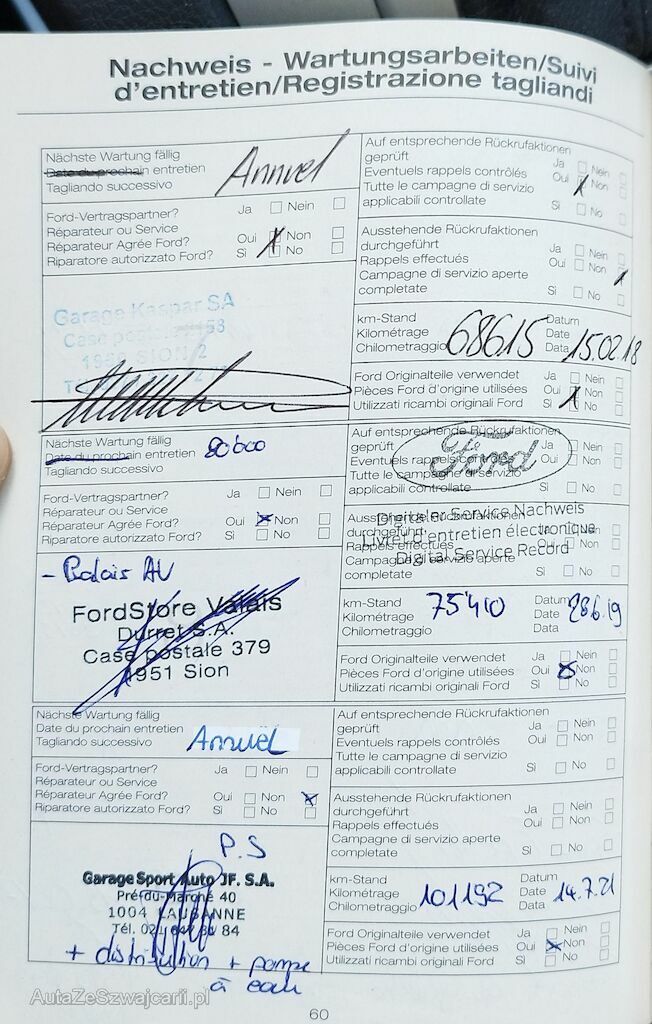 Nachweis - Wartungsarbeiten/Suivi
d'entretien/Registrazione tagliandi
Nächste Wartung fällig
Date du prochain entretien
Tagliando successivo
Annuel
Ford-Vertragspartner?
Réparateur ou Service
Réparateur Agrée Ford?
Riparatore autorizzato Ford?
Ja Nein
Oui Non
Sì No
Garage Kaspar SA
SION 2
Auf entsprechende Rückrufaktionen
geprüft
Eventuels rappels contrôlés
Tutte le campagne di servizio
applicabili controllate
Ja Nein
Oui Non
Sì No
Ausstehende Rückrufaktionen
durchgeführt
Rappels effectués
Campagne di servizio aperte
completate
Ja Nein
Oui Non
Sì No
km-Stand
Kilométrage
Chilometraggio
68615
Datum
Date
Data
15.02.18
Ford Originalteile verwendet
Pièces Ford d'origine utilisées
Utilizzati ricambi originali Ford
Ja Nein
Oui Non
Sì No
Nächste Wartung fällig
Date du prochain entretien
Tagliando successivo
80'000
Ford-Vertragspartner?
Réparateur ou Service
Réparateur Agrée Ford?
Riparatore autorizzato Ford?
Ja Nein
Oui Non
Sì No
- Balais AV
FordStore Valais
Durret S.A.
Case postale 379
1951 Sion
Auf entsprechende Rückrufaktionen
geprüft
Eventuels rappels contrôlés
Tutte le campagne di servizio
applicabili controllate
Ja Nein
Oui Non
Sì No
Ford
Digitaler Service Nachweis
Livret d'entretien électronique
Digital Service Record
Ausstehende Rückrufaktionen
durchgeführt
Rappels effectués
Campagne di servizio aperte
completate
Sì No
km-Stand
Kilométrage
Chilometraggio
75'410
Datum
Date
Data
28.6.19
Ford Originalteile verwendet
Pièces Ford d'origine utilisées
Utilizzati ricambi originali Ford
Ja Nein
Oui Non
Sì No
Nächste Wartung fällig
Date du prochain entretien
Tagliando successivo
Annuel
Ford-Vertragspartner?
Réparateur ou Service
Réparateur Agrée Ford?
Riparatore autorizzato Ford?
Ja Nein
Oui Non
Sì No
P.S
Garage Sport Auto JF. S.A.
Pré-du-Marché 40
1004 LAUSANNE
Tél. 021 84
+ distribution + pompe
à eau
Auf entsprechende Rückrufaktionen
geprüft
Eventuels rappels contrôlés
Tutte le campagne di servizio
applicabili controllate
Ja Nein
Oui Non
Sì No
Ausstehende Rückrufaktionen
durchgeführt
Rappels effectués
Campagne di servizio aperte
completate
Ja Nein
Oui Non
Sì No
km-Stand
Kilométrage
Chilometraggio
101192
Datum
Date
Data
14.7.21
Ford Originalteile verwendet
Pièces Ford d'origine utilisées
Utilizzati ricambi originali Ford
Ja Nein
Oui Non
Sì No
AutaZeSzwajcarii.pl
60